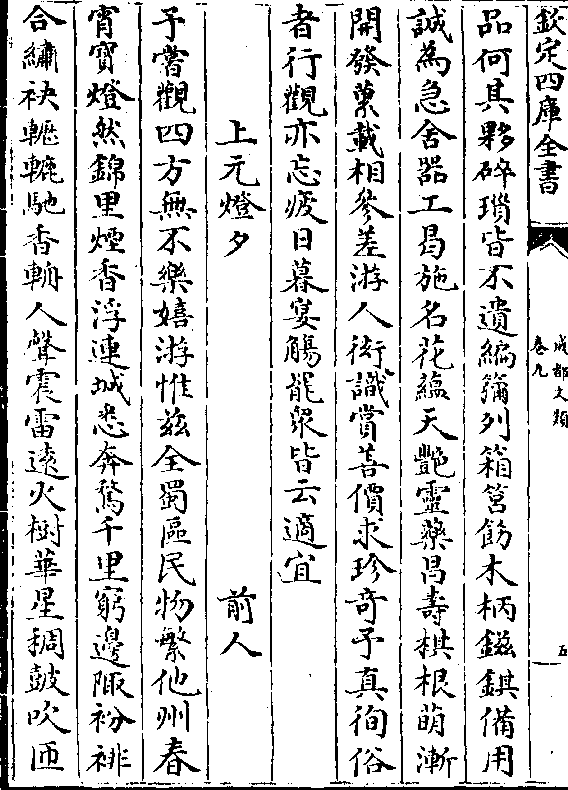 欽定四庫全書
成都文類
卷九
五
品何其夥碎瑣皆不遺編彌列箱筥飭木柄鎡錤備用
誠為急舍器工曷施名花蘊天艷靈藥昌壽棋根萌漸
開發藁載相參差游人衒識賞善價求珍奇予真徇俗
者行觀亦忘疲日暮宴觴能衆皆云適宜
上元燈夕 前人
予嘗觀四方無不樂嬉游惟兹全蜀區民物繁他州春
宵寶燈然錦里煙香浮連城悉奔騖千里窮邊陬衯裶
合繡袂轣轆馳香輈人聲震雷遠火樹華星稠鼓吹匝